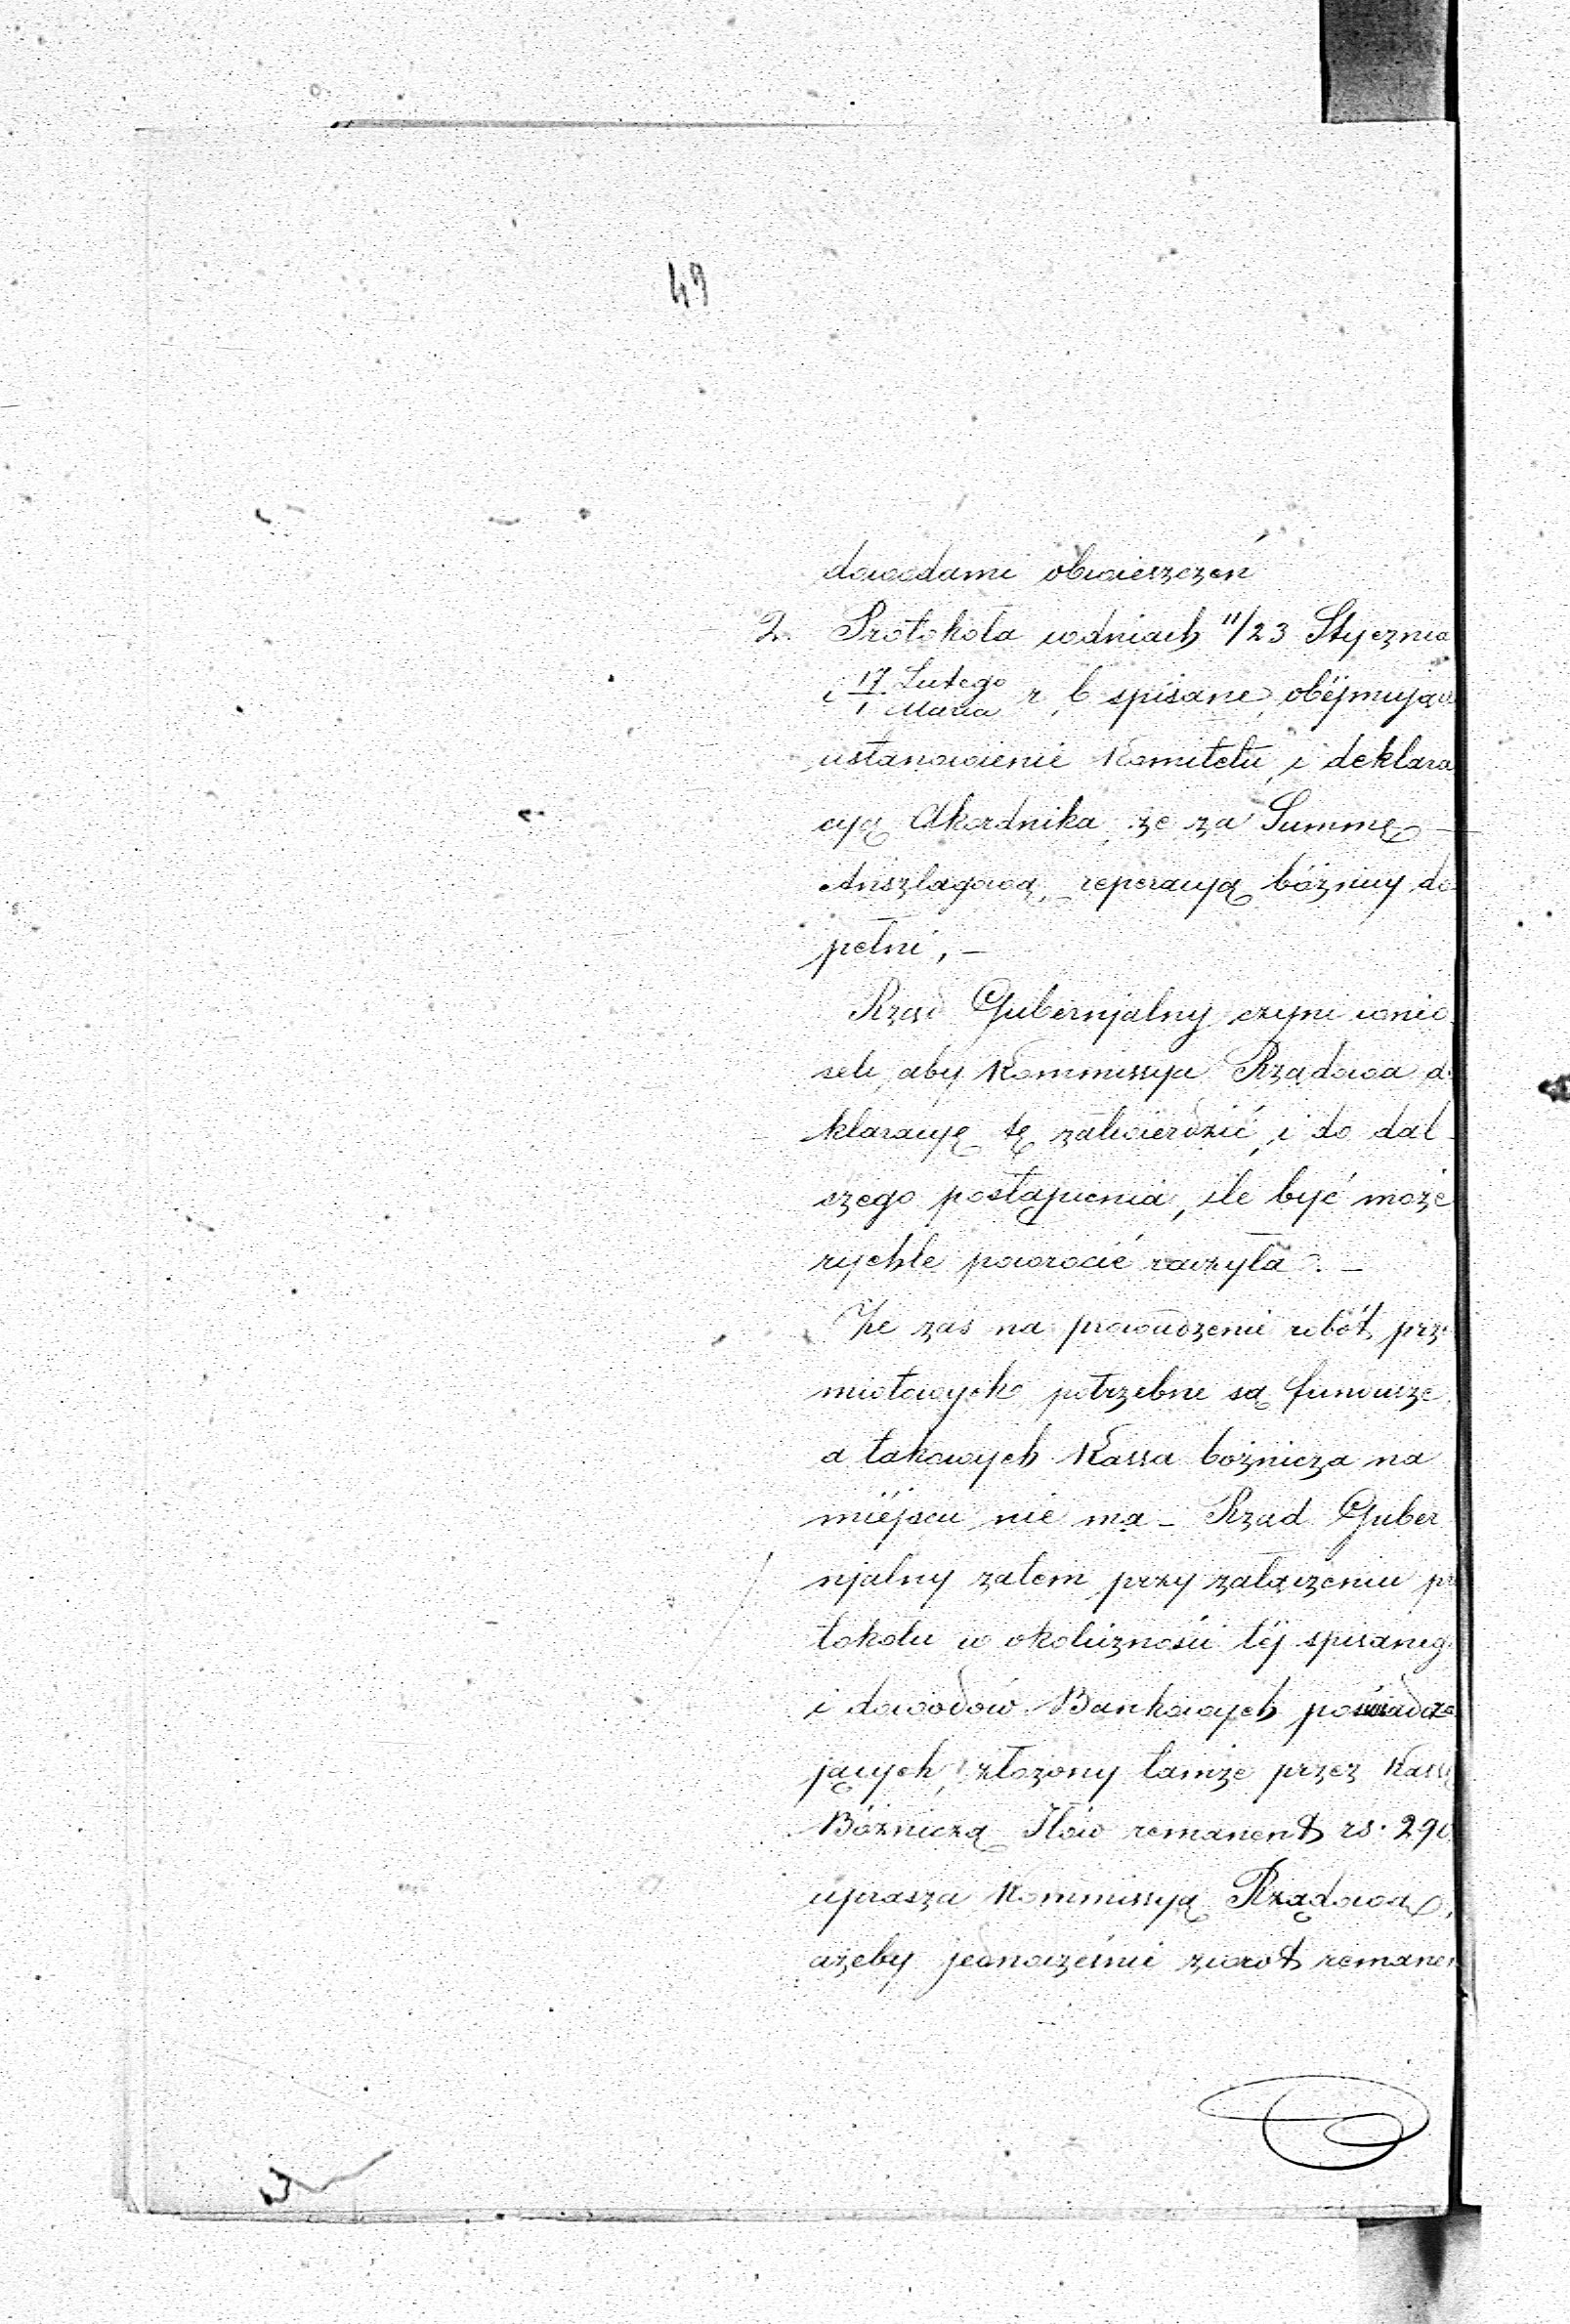 49
dowodami obwieszczeń
2. Protokola wdniach 11/23 Stycznia
i 17 Lutego / 1 Marca r. b spisane, obëjmując
ustanowienie Komitetu, i deklara
cyą Akordnika, że za Summę
Anszlagową, reperacyą bóżnicy do
pełni, –
Rząd Gubernjalny czyni wnio
sek, aby Kommissya Rządowa de
klaracyę tę zatwierdzić, i do dal
szego postąpienia, ile być może
rychle powrócić raczyła. –
Że zaś na prowadzenie robót prze
miotowych potrzebne są fundusze,
a takowych Kassa bożnicza na
miëjscu nie ma – Rząd Guber
njalny zatem przy załączeniu pro
tokołu w okoliczności tëj spisaneg
i dowodów Bankowych poświadcza
jących, złożony tamże przez Kassę
Bóżniczą Iłów remanent rs. 290
uprasza Kommissyą Rządową,
ażeby jednocześnie zwrot remanen